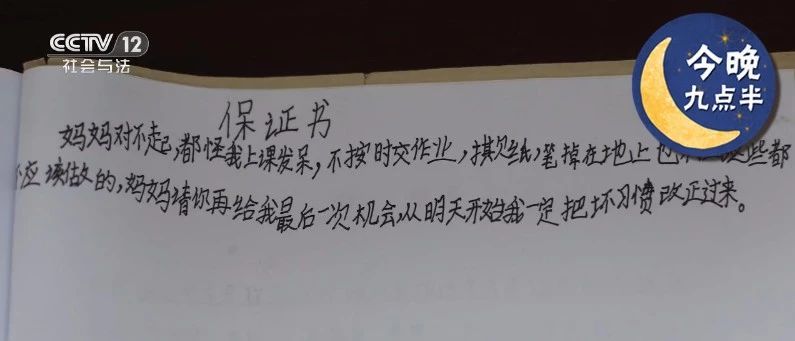 CCTV 12
社会与法
今晚
九点半
保证书
妈妈对不起,都怪我上课发呆,不按时交作业,撕纸,笔掉在地上也些都
不应该做的,妈妈请你再给我最后一次机会,从明天开始我一定把坏习惯改正过来。